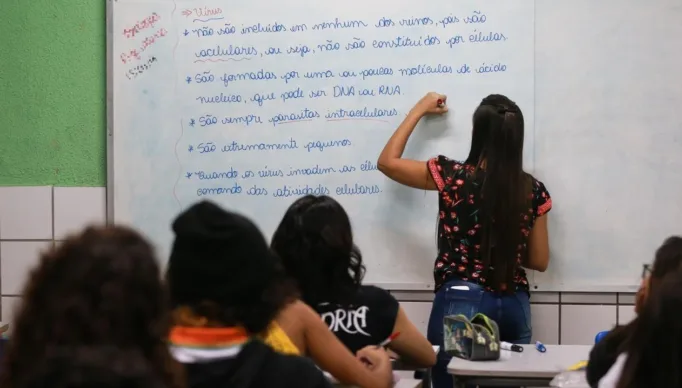 → Vírus
* não são incluídos em nenhum dos reinos, pois são
acelulares, ou seja, não são constituídos por células.
* São formados por uma ou poucas moléculas de ácido
nucleico, que pode ser DNA ou RNA.
* São sempre parasitas intracelulares
* São extremamente pequenos
* Quando os vírus invadem as cél
comando das atividades celulares.